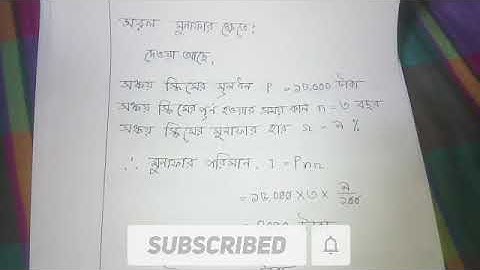 সরল মুনাফার ক্ষেত্রে:
দেওয়া আছে,
সঞ্চয় স্কিমের মূলধন P = ১৫,০০০ টাকা
সঞ্চয় স্কিমের পূর্ন হওয়ার সময়কাল n = ৩ বছর
সঞ্চয় স্কিমের মুনাফার হার r = ৯ %
∴ মুনাফার পরিমান, I = Pnr
= ১৫,০০০ × ৩ × ৯/১০০
টাকা
SUBSCRIBED